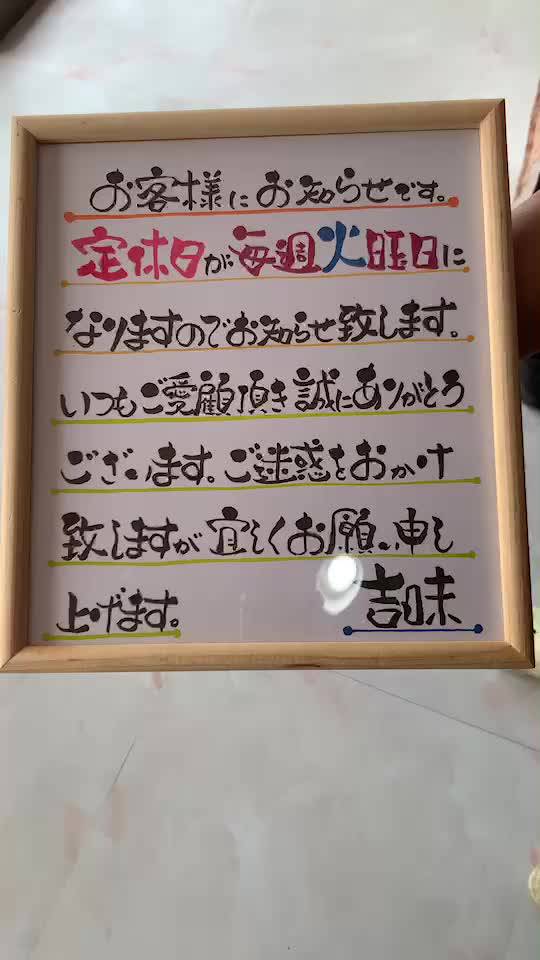 お客様にお知らせです。
定休日が毎週火曜日に
なりますのでお知らせ致します。
いつもご愛顧頂き誠にありがとう
ございます。ご迷惑をおかけ
致しますが宜しくお願い申し
上げます。 吉味